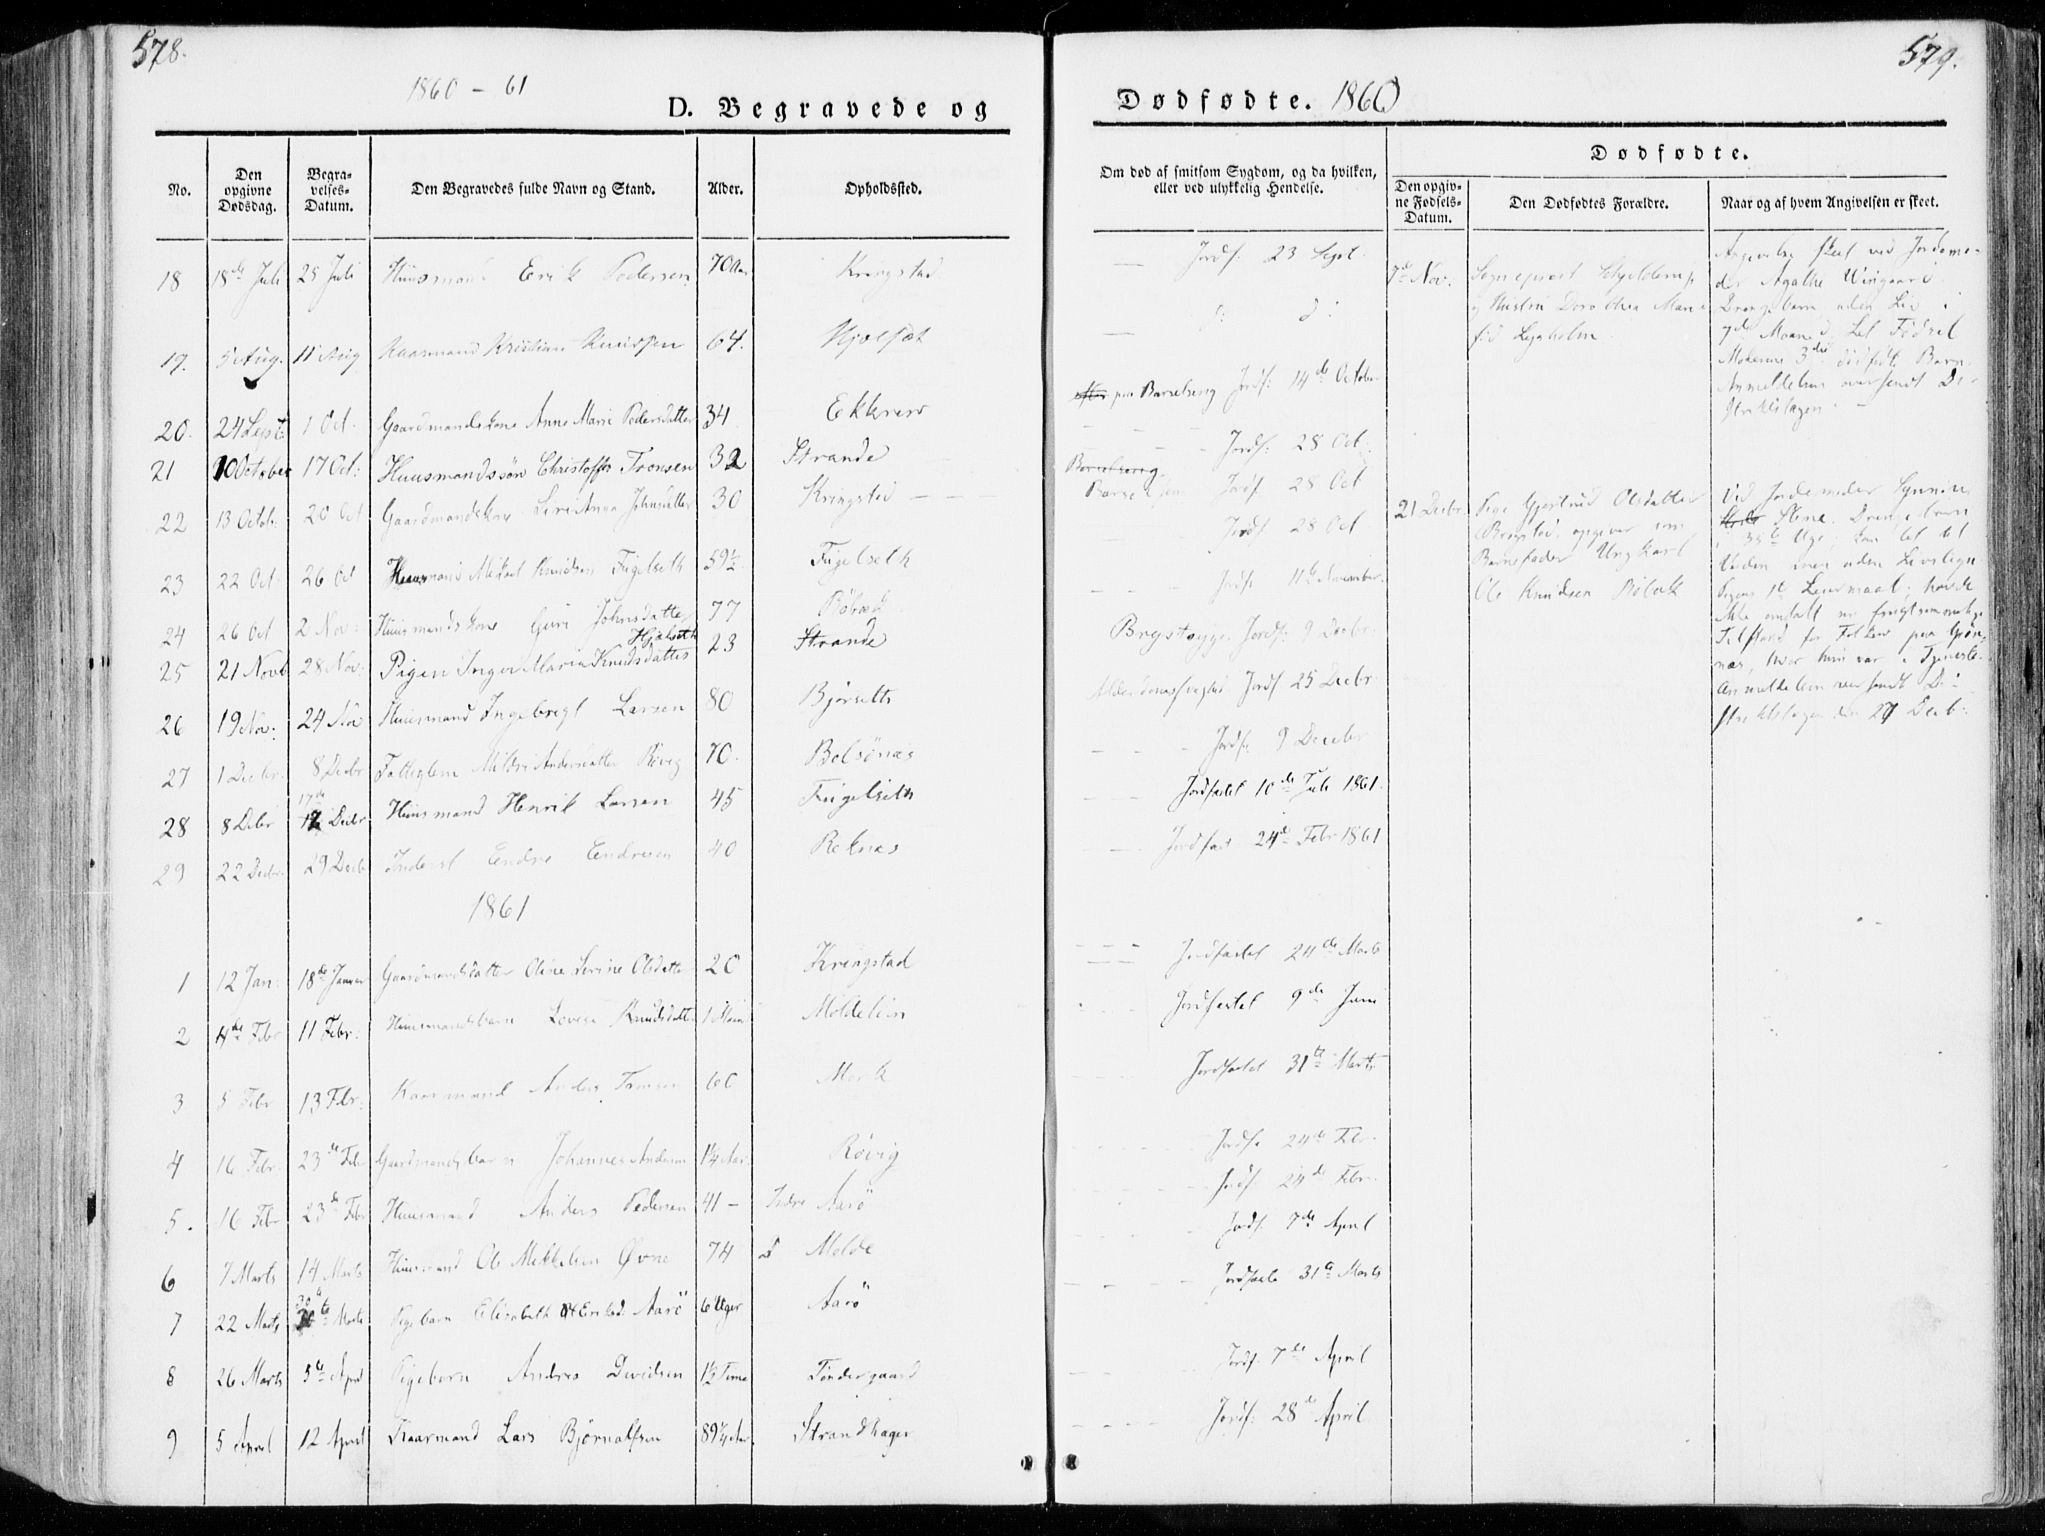 578.
1860 - 61
D. Begravede og
No.
Den opgivne Dødsdag.
Begravelses-Datum.
Den Begravedes fulde Navn og Stand.
Alder.
Opholdssted.
18 18de Juli 25 Juli Huusmand Erik Pedersen 70 Aar Kringstad
19. 5 Aug. 11 Aug Kaarmand Kristian Knudsen 64.
20. 24 Sept. 1 Oct. Gaardmandskone Anne Marie Pedersdatter 34 Ekkrem
21 10 October 17 Oct: Huusmandssøn Christoffer Tronsen 32 Strande
22 13 Octob. 20 Oct Gaardmandskone Siri Anna Johnsdatter 30 Kringstad
23 22 Oct 26 Oct Huusmand Mikkel Knudsen Fugelseth 59½ Fugelseth
24 26 Oct 2 Nov: Huusmandskone Guri Johnsdatter 77 Røbæk
25 21 Novb 28 Nov: Pigen Inger Maria Knudsdatter Hjelseth 23 Strande
26 19 Nov: 24 Nov Huusmand Ingebrigt Larsen 80 Bjørseth
27 1 Decbr. 8 Decbr Fattiglem Mildri Andersdatter Røvig 70. Bolsønæs
28 8 Decbr 17de 12 Decbr Huusmand Henrik Larsen 45 Fugelseth
29 22 Decbr. 29 Decbr Inderst Endre Endresen 40 Reknæs
1861
1 12 Jan: 18de Januar Gaardmandsdatter Oline Serine Olsdatter 20 Kringstad
2 4de Febr 11 Febr: Huusmandsbarn Lovise Knudsdatter 1 Moldelien
3 5 Febr 13 Febr: Kaarmand Anders Tronsen 60 Mork
4 16 Febr. 23de Febr Gaardmandsbarn Johannes Andersen 1¼ Aar Røvig
5. 16 Febr 23de Febr Huusmand Anders Pedersen 41 - Indre Aarö
6 7 Marts 14 Marts Huusmand Ole Mikkelsen Øvne 74 Molde
7 22 Marts 30te Marts Pigebarn Elisabeth Aarö 6 Uger Aarö
8 26 Marts 5te April Pigebarn Andrea Davidsen 1½ Time Tøndergaard
9 5 April 12 April Kaarmand Lars Bjørnalfsen 89¼ Aar. Strandhagen
579.
Dødfødte. 1860
Om død af smitsom Sygdom, og da hvilken, eller ved ulykkelig Hendelse.
Dødfødte.
Den opgivne Fødsels-Datum.
Den Dødfødtes Forældre.
Naar og af hvem Angivelsen er skeet.
Jordf. 23 Sept.
paa Barselseng Jordf: 14de October
Jordf: 28 Oct.
Barselseng
Jordf 28 Oct
Jordf. 28 Oct
Jordf. 11te November
Brystsyge. Jordf: 9 Decbr
Alderdomssvaghed Jordf 25 Decbr.
Jordf: 9 Decebr
Jordfæstet 10de Juli 1861.
Jordfæst 24de Febr 1861
Jordfæstet 24de Marts
Jordfæstet 9de Juni
Jordfæstet 31te Marts
Jordfæ 24de Febr.
Jordf. 24de Febr.
Jordf. 7de April
Jordfæste 31te Marts
Jordf. 7de April
Jordf: 28de April
7de Nov.
Sogneprest Schjelderup
og Hustru Dorothea Marie
fød Leganholm
Angivelse skeet ved Jordemo-
der Agathe Wingaard
Drengebarn uden Liv i
7de Maaned. Let Fødsel
Moderens 3die dødfødte Barn.
Anmeldelsen oversendt Di-
striktslægen.
21 Decbr
Pige Gjertrud Olsdatter
Kringstad, opgiver som
Barnefader Ungkarl
Ole Knudsen Röbek
Ved Jordemoder
Stene. Drengebarn
i 35te Uge; kom let til
Verden men uden Livstegn
Pigens 1ste Leiermaal; havde
ikke omtalt sin frugtsommelige
Tilstand for Folkene paa Grøn-
næs, hvor hun var i Tjeneste.
Anmeldelsen oversendt Di-
striktslægen den 27 Decb.